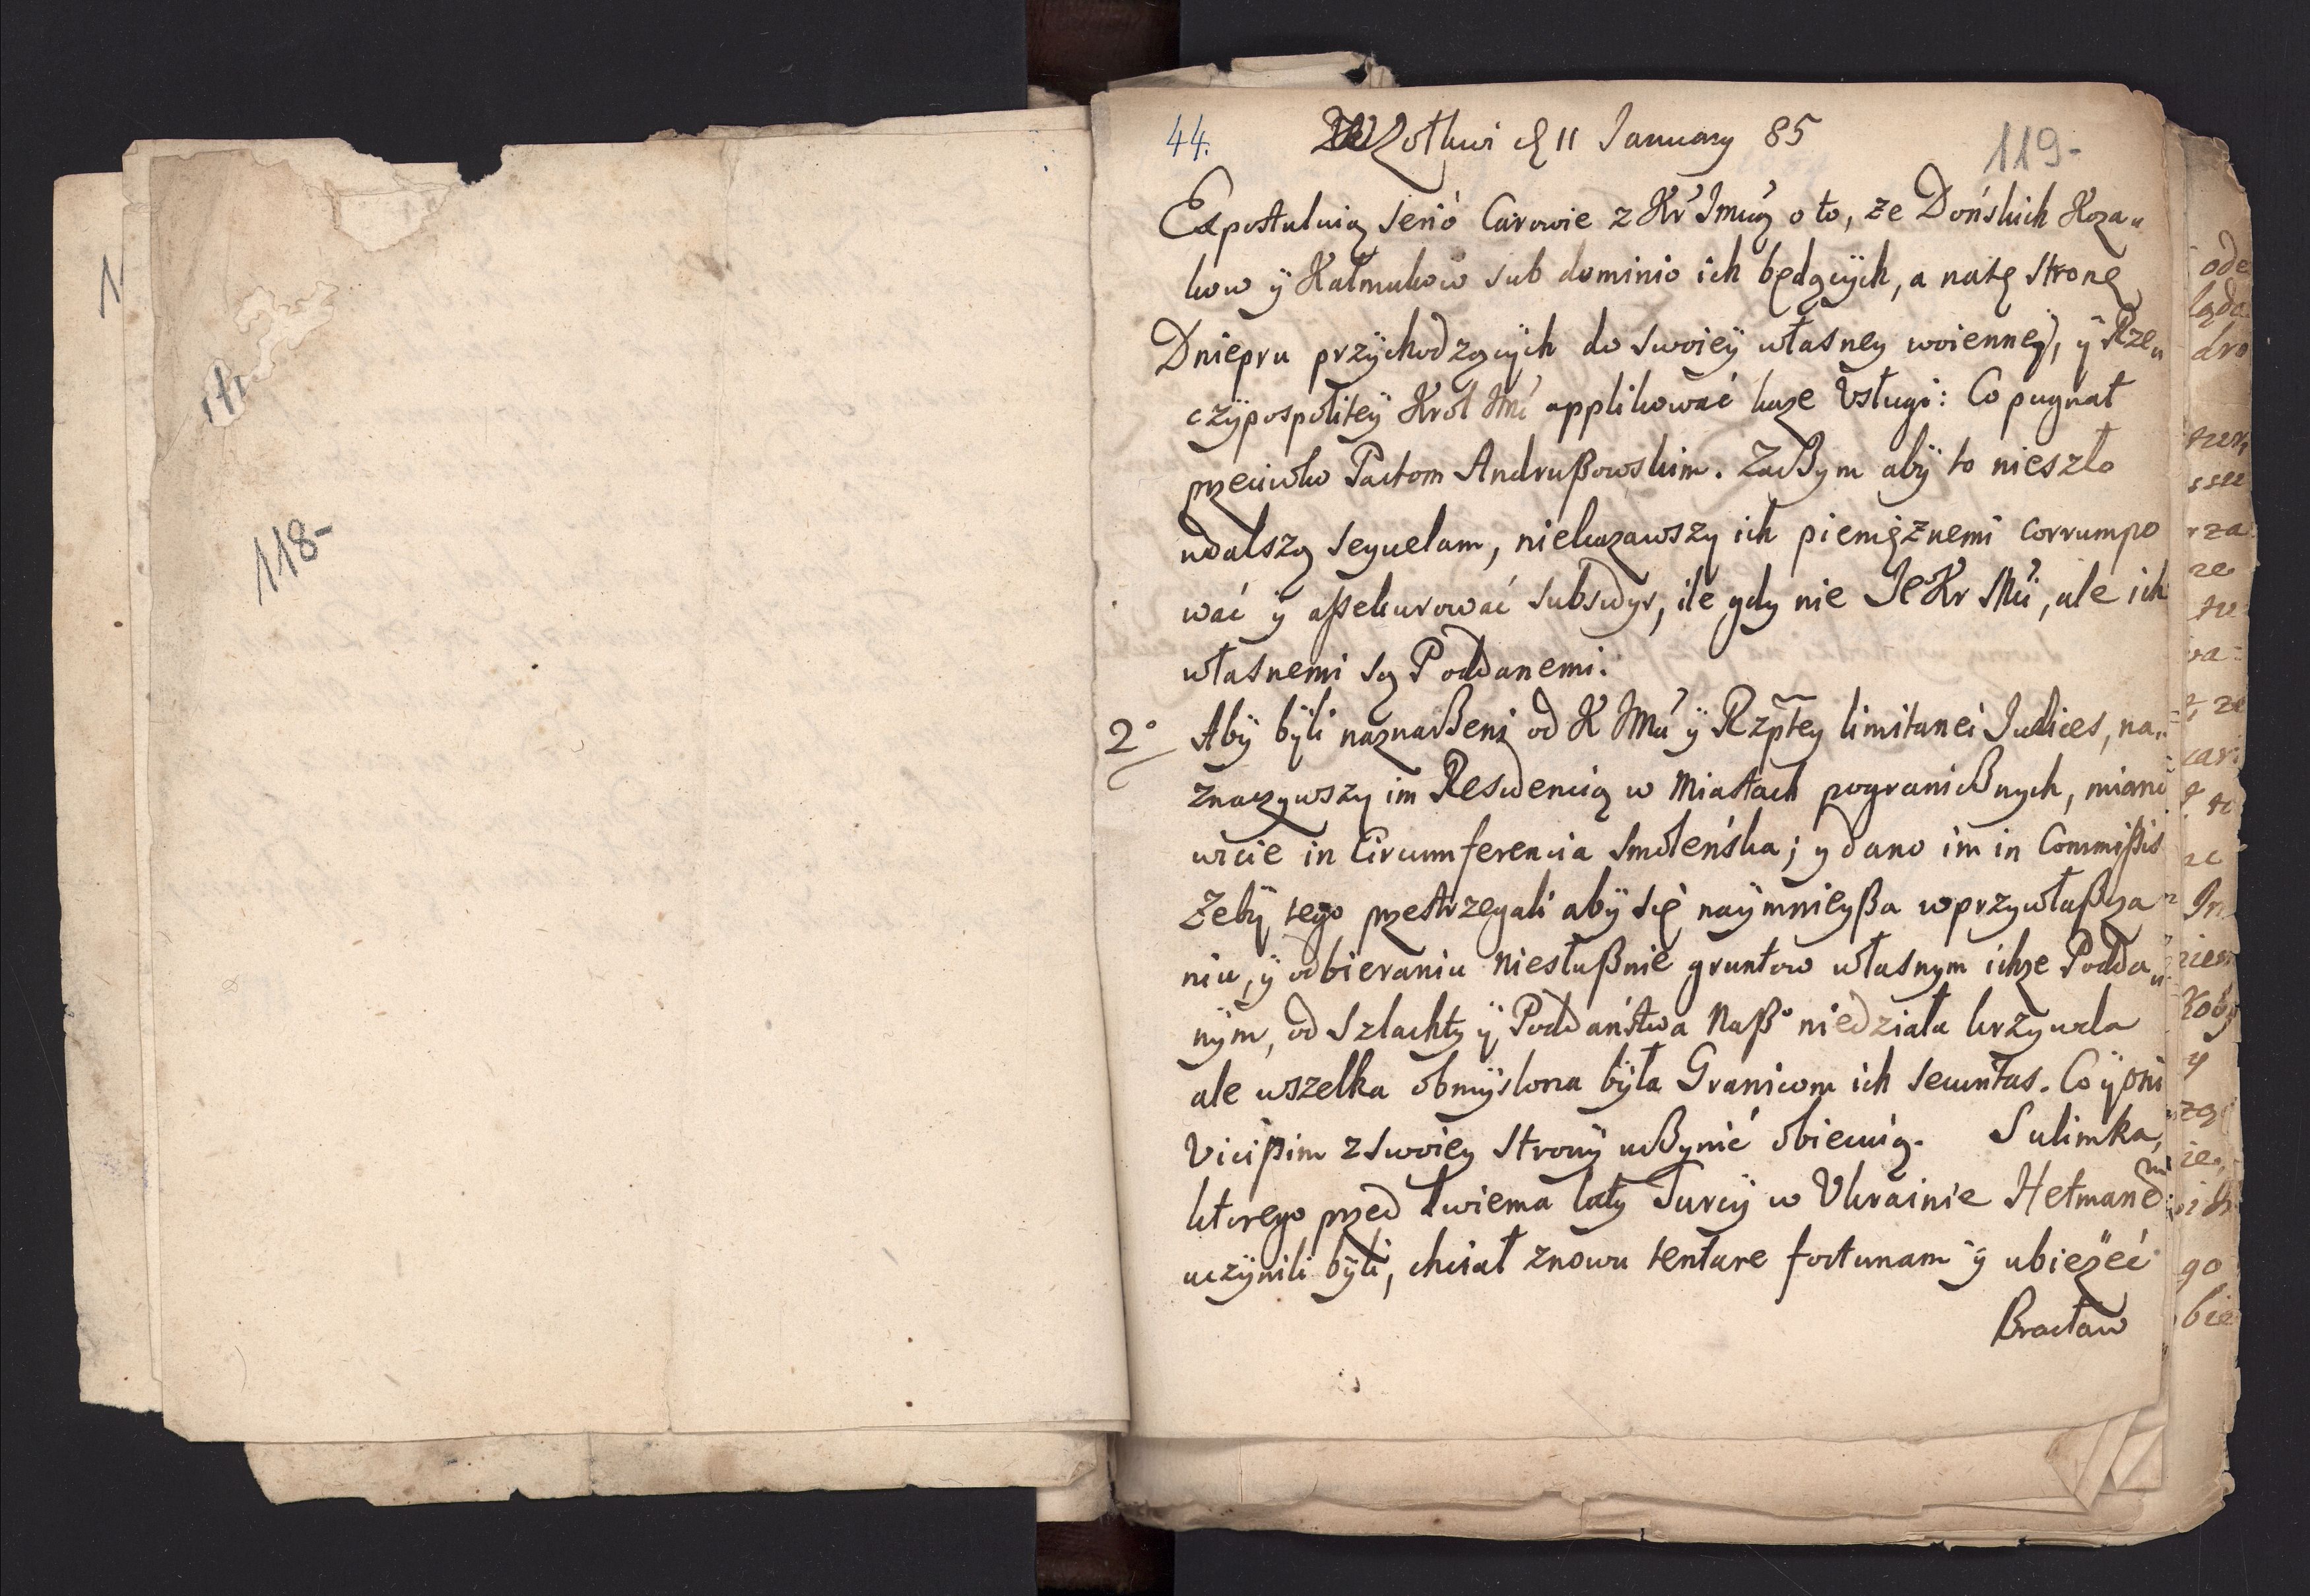 118-
44.
119-
Zołkwi d 11 January 85
Expostuluią serió Carowie z Kr Jmcią o to, ze Dońskich Koza„
kow ÿ Kałmukow sub dominio ich będącÿch, a na tę stronę
Dniepru przÿchodzącÿch do swoieÿ własney woienneÿ, ÿ Rze„
czÿpospoliteÿ Krol Jmć applikować kaze Vsługi: Co pugnat
przeciwko Pactom Andrußowskim. Zacßym abÿ to nieszło
w dalszą sequelam, niekazawszy ich pieniężnemi corrumpo
wać ÿ aßekurować subsidys, ile gdy nie Je Kr Mći, ale ich
własnemi są Poddanemi.
2° Abÿ bÿli naznacßeni od K JMci ÿ Rzptey limitanei Judices, na„
znaczywszy im Residencią w Miastach pogranicßnych, miano
wicie in Circumferencia Smoleńska; y dano im in Commißis
Zebÿ tego przestrzegali abÿ się naÿmnieyßa w przywłaßcza
niu, ÿ odbieraniu niesłußnie gruntow własnym ichze Podda„
nÿm, od Szlachty ÿ Poddaństwa Naß° niedziała krzywda
ale wszelka obmÿslona bÿła Granicom ich securitas. Co ÿ oni
Vicißim z swoiey stronÿ ucßynić obiecuią. Sulimka,
ktorego przed dwiema laty Turcÿ w Vkrainie Hetmanem
uczÿnili bÿli, chciał znowu tentare fortunam ÿ ubiezeć
Bracław